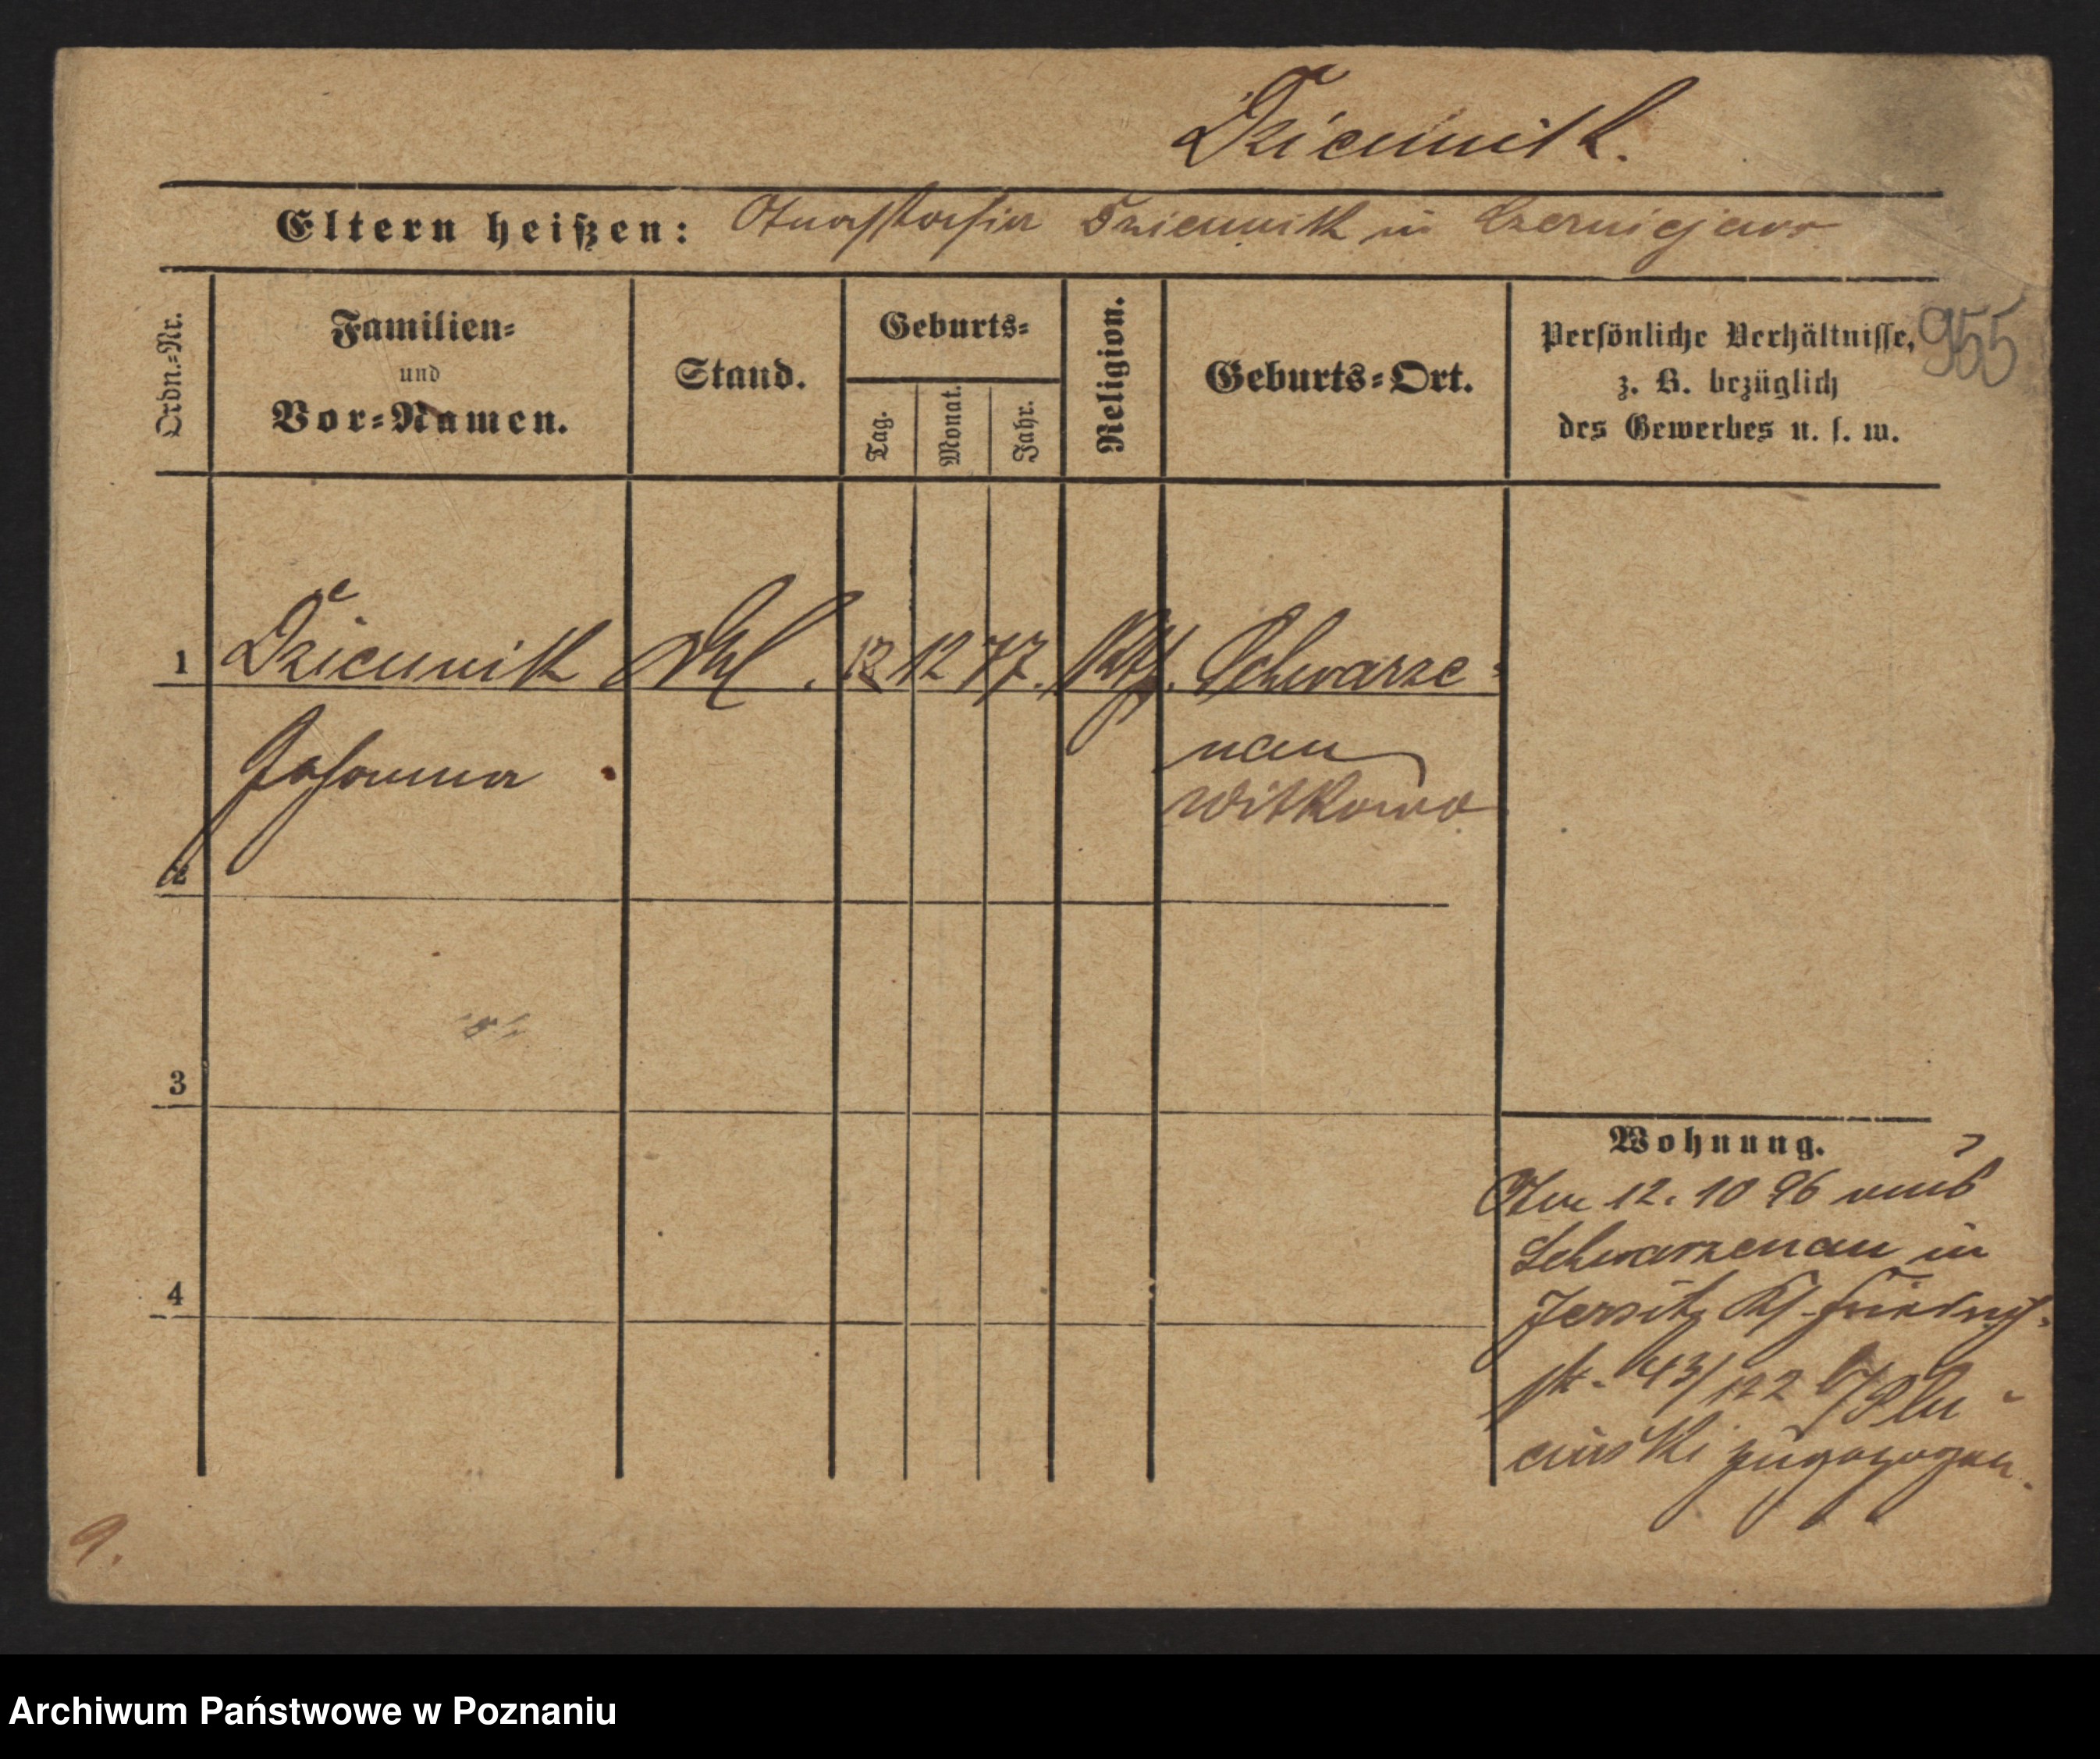 Dziennik.
Eltern heißen: Anastasia Dziennik in Czerniejewo
Ordn.=Nr.
Familien=
und
Vor=Namen.
Stand.
Geburts=
Tag.
Monat.
Jahr.
Religion.
Geburts=Ort.
Persönliche Verhältnisse,
z. B. bezüglich
des Gewerbes u. s. w.
955
1 Dziennik 12 12 77. Kth. Schwarze=
Johanna nau
Witkowo
2
3
4
Wohnung.
Am 12. 10 96 aus
Schwarzenau in
Jersitz Kf. Friedrich=
str. 43/122 b/
zugezogen.
9.
Archiwum Państwowe w Poznaniu